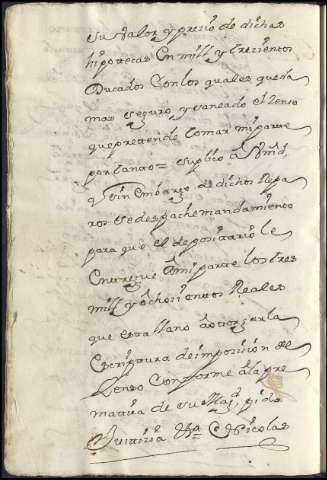 su valor y precio de dichas
hipotecas en mill y trezientos
Ducados con los quales queda
mas seguro y saneado el zenso
que pretende tomar mi parte
por tanto = suplico a Vmd
q sin embargo de dichos repa
ros se despache mandamiento
para que el depositario le
entregue a mi parte los tres
mill y ochozientos Reales
que esta llano a otorgar la
escriptura de imposizion del
zenso conforme a la pre
matica de su Mag.d pido
Justizia